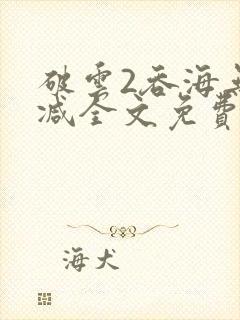 破雲2吞海
减全文免費
海犬